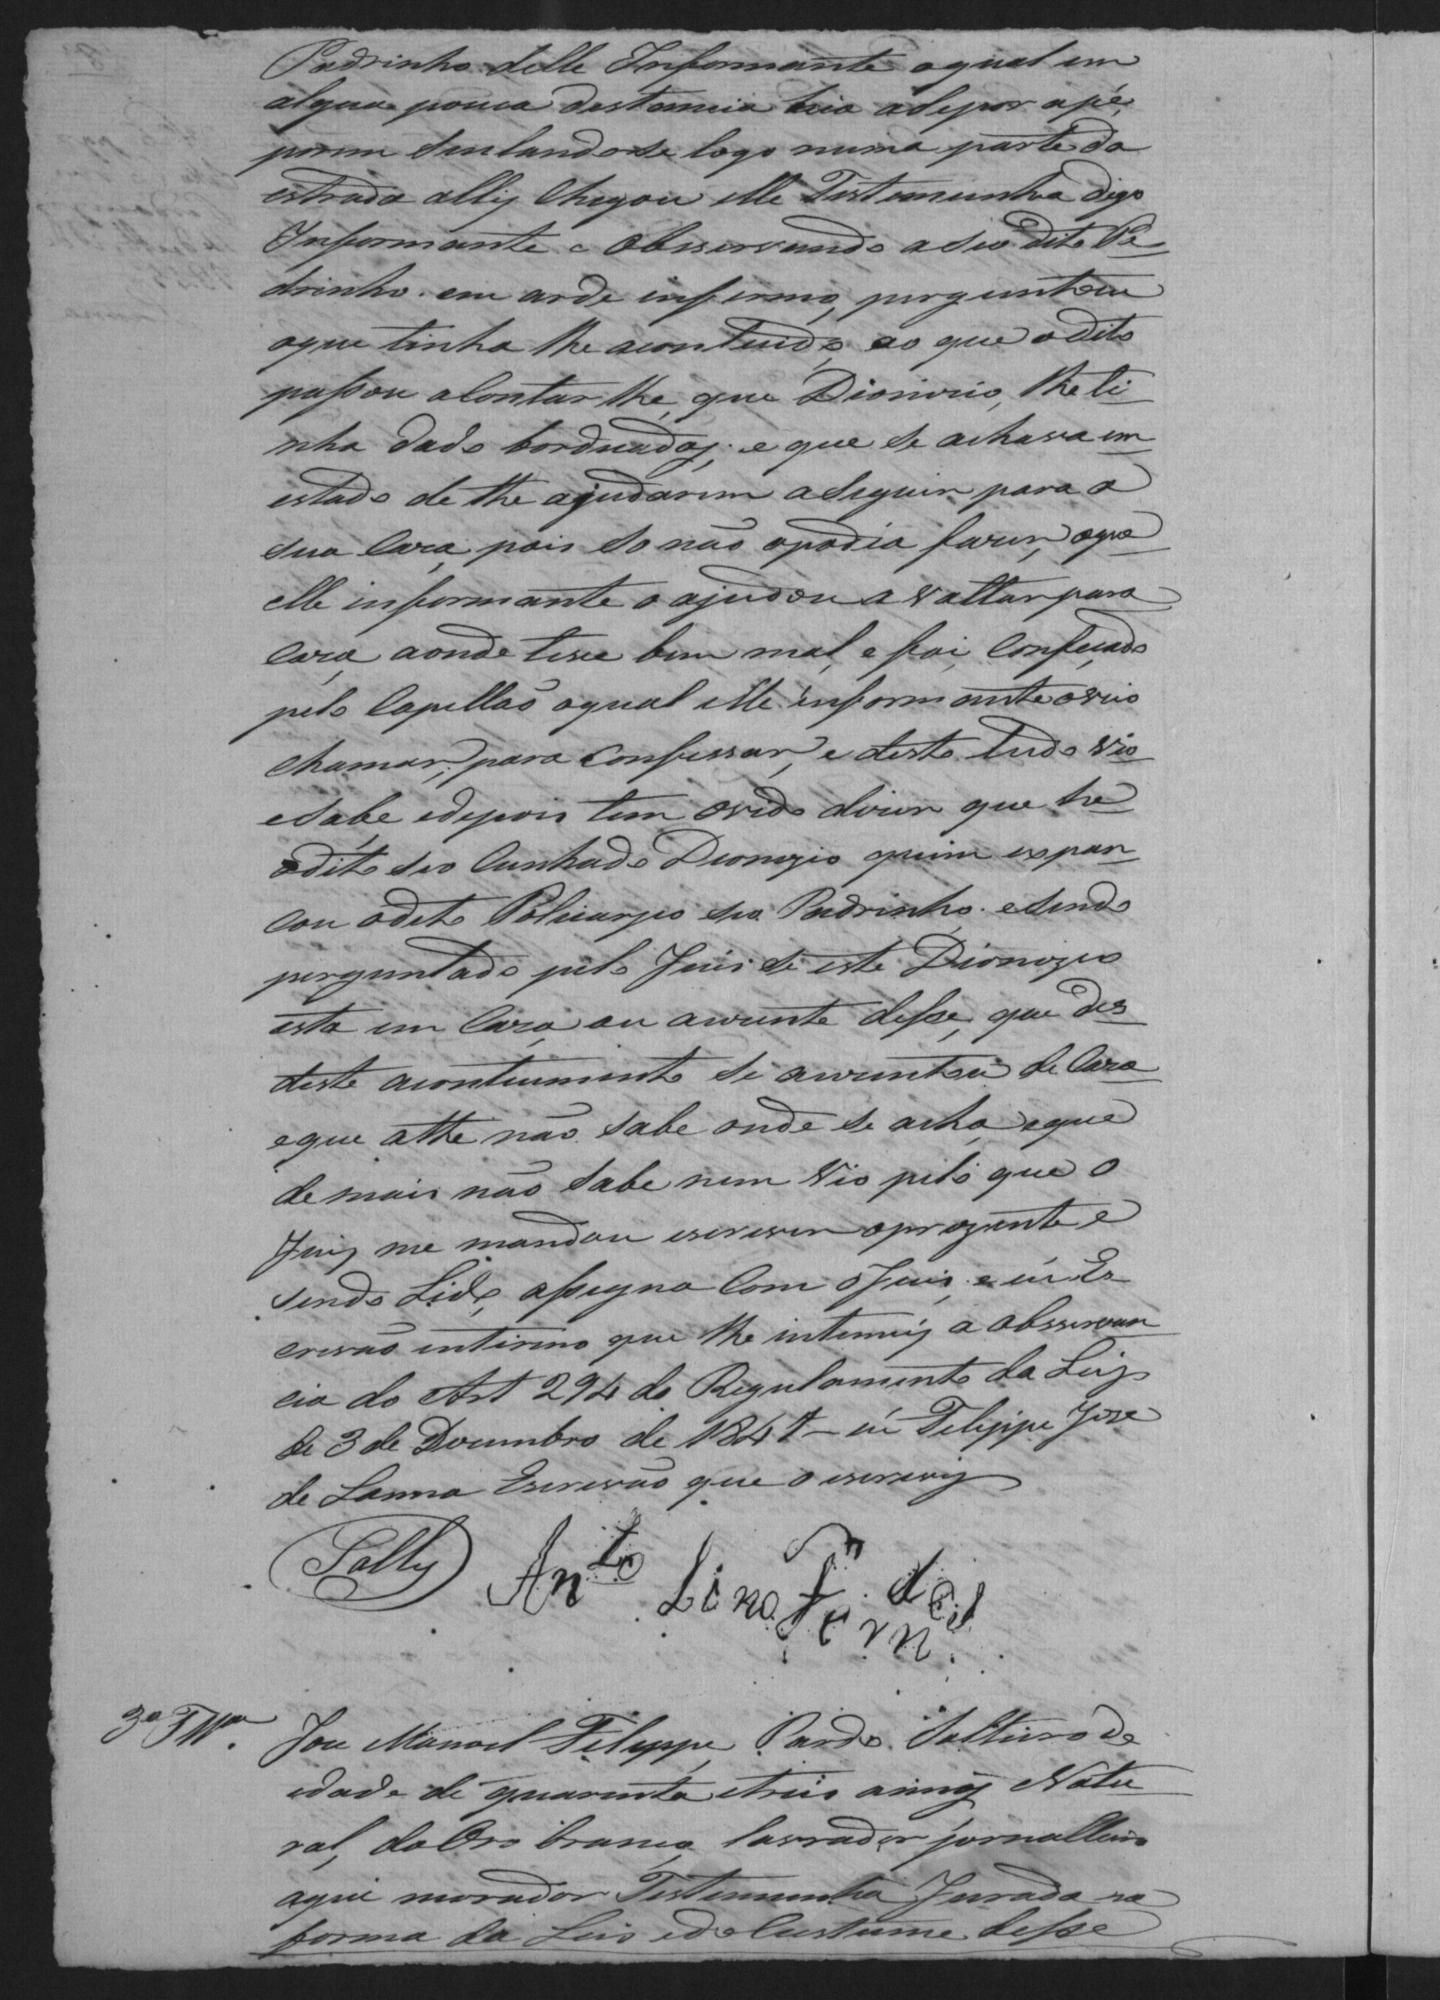 Padrinho delle Informante o qual em
alguma pouca destancia hia a depor apé,
porem sentando-se logo numa parte da
estrada ally chegou elle Testemunha digo
Informante e observando a seo dito Pa-
drinho em ar de infermo, perguntou
oque tinha lhe acontecido, ao que o dito
passou a Contar lhe, que Dionizio, lhe ti-
nha dado borduadas, e que se achava em
estado de lhe ajudarem a seguir para a
sua Caza, pois so não o podia fazer, oque
elle informante o ajudou a voltar para
Caza, aonde teve bem mal, e foi Confeçado
pelo Capellão oqual elle informante o veio
chamar, para Confessar, e desto tudo vio
e sabe e depois tem ovido dizer que hé
o dito seo Cunhado Dionozio quem espan-
cou o dito Policarpo seo Padrinho, e sendo
perguntado pelo Juis se este Dionozio
esta em Caza, ou auzente desse, que des
deste acontecimento se auzentou de Caza
eque athe não sabe onde se acha, eque
de mais não sabe nem vio pelo que o
Juiz me mandou escrever o prezente e
sendo Lido, assigna Com o Juis, e eu Es
crivão interino que lhe intimey a observan
cia do Art 294 do Regulamento da Ley
de 3 de Dezembro de 1841 – eu Felippe Joze
de Lanna Escrivão que o escrevy
Sally Anto Lino Fernd
3a Tta. Joze Manoel Felippe, Pardo Solteiro de
idade de quarenta e treis annos Natu
ral, do Oro branco, lavrador jornalleiro
aqui morador Testemunha Jurada na
forma da Leis e do Custume desse